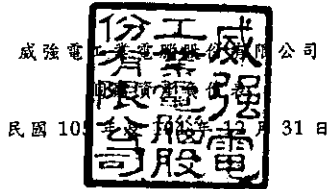 威強電工業電腦股份有限公司
資
民國 105 年 年 12 月 31 日
威強電
工業電腦股
份有限公司